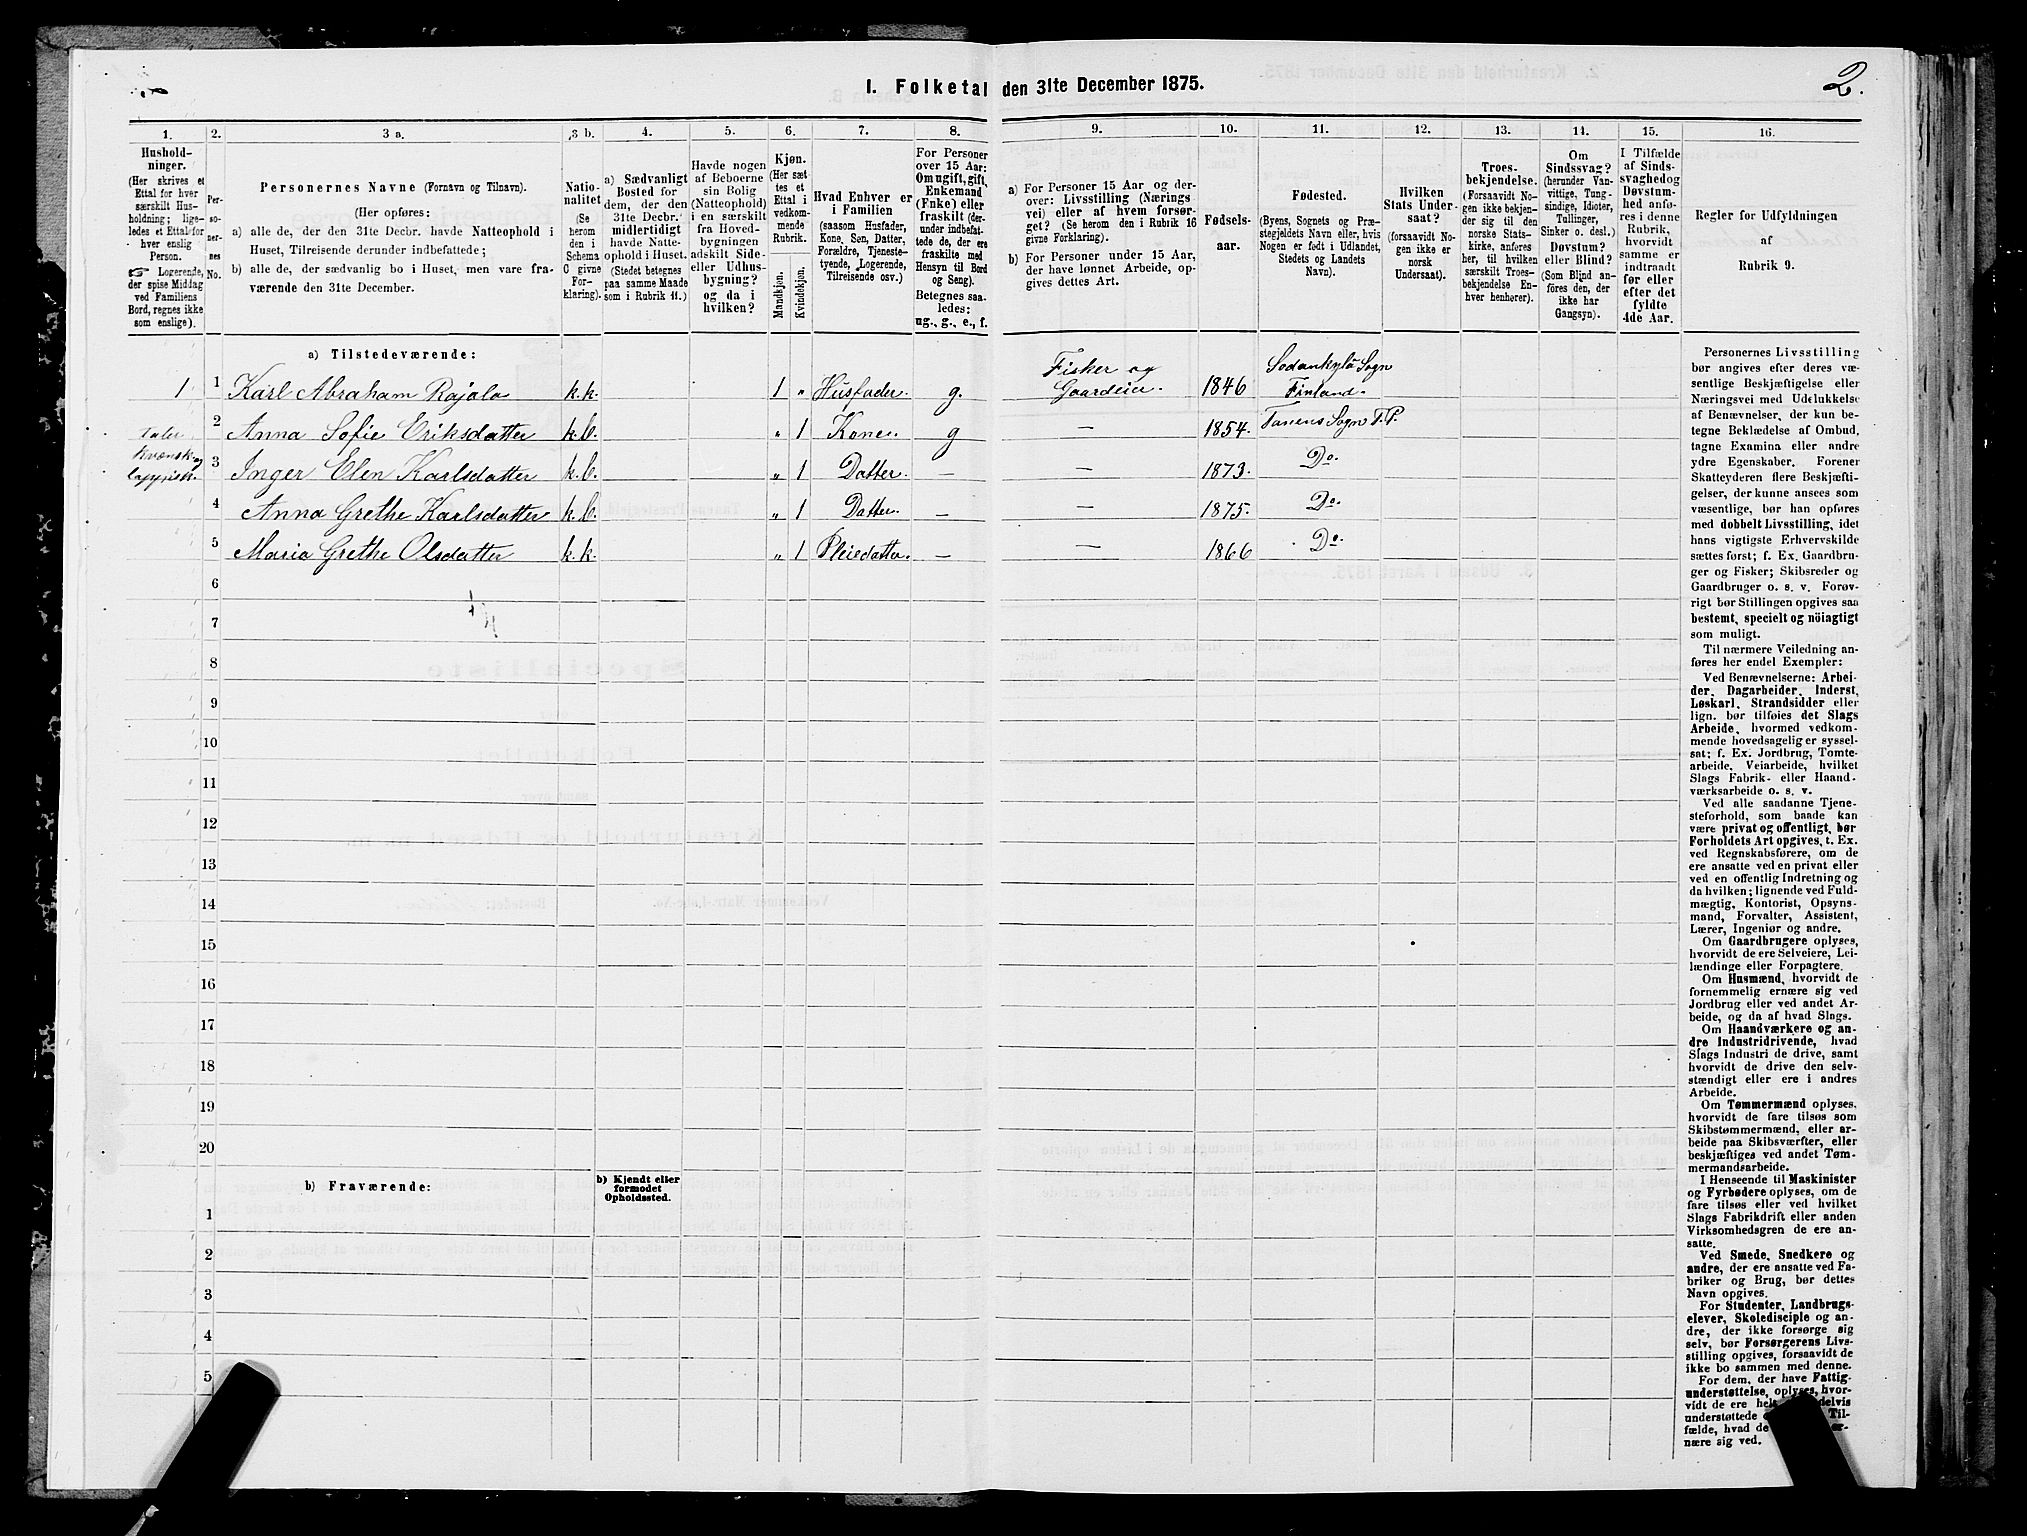 I. Folketal den 31te December 1875.
2.
1.
2.
3 a.
3 b.
4.
5.
6.
7.
8.
9.
10.
11.
12.
13.
14.
15.
16.
Hushold-
ninger.
(Her skrives et
Ettal for hver
særskilt Hus-
holdning; lige-
ledes et Ettal for
hver enslig
Person.
☞ Logerende,
der spise Middag
ved Familiens
Bord, regnes ikke
som enslige).
Per-
so-
ner-
nes
No.
Personernes Navne (Fornavn og Tilnavn).
(Her opføres:
a) alle de, der den 31te Decbr. havde Natteophold i
Huset, Tilreisende derunder indbefattede;
b) alle de, der sædvanlig bo i Huset, men vare fra-
værende den 31te December.
Natio-
nalitet
(Se
herom
den i
Schema
C givne
For-
klaring).
a) Sædvanligt
Bosted for
dem, der den
31te Decbr.
midlertidigt
havde Natte-
ophold i Huset.
(Stedet betegnes
paa samme Maade
som i Rubrik 11.)
Havde nogen
af Beboerne
sin Bolig
(Natteophold)
i en særskilt
fra Hoved-
bygningen
adskilt Side-
eller Udhus-
bygning?
og da i
hvilken?
Kjøn.
(Her sæt-
tes et
Ettal i
vedkom-
mende
Rubrik.
Mandkjøn.
Kvindekjøn.
Hvad Enhver er
i Familien
(saasom Husfader,
Kone, Søn, Datter,
Forældre, Tjeneste-
tyende, Logerende,
Tilreisende osv.)
For Personer
over 15 Aar:
Om ugift, gift,
Enkemand
(Enke) eller
fraskilt (der-
under indbefat-
tede de, der ere
fraskilte med
Hensyn til Bord
og Seng).
Betegnes saa-
ledes:
ug., g., e., f.
a) For Personer 15 Aar og der-
over: Livsstilling (Nærings
vei) eller af hvem forsør-
get? (Se herom den i Rubrik 16
givne Forklaring).
b) For Personer under 15 Aar,
der have lønnet Arbeide, op-
gives dettes Art.
Fødsels-
aar.
Fødested.
(Byens, Sognets og Præ-
stegjeldets Navn eller, hvis
Nogen er født i Udlandet,
Stedets og Landets
Navn).
Hvilken
Stats Under-
saat?
(forsaavidt No-
gen ikke er
norsk
Undersaat).
Troes-
bekjendelse.
(Forsaavidt No-
gen ikke bekjen-
der sig til den
norske Stats-
kirke, anføres
her, til hvilken
særskilt Troes-
bekjendelse En-
hver henhører).
Om
Sindssvag?
(herunder Van-
vittige, Idioter,
Tullinger,
Sinker o. desl.)
Døvstum?
eller Blind?
(Som Blind an-
føres den, der
ikke har
Gangsyn).
I Tilfælde
af Sinds-
svaghed og
Døvstum-
hed anfø-
res i denne
Rubrik,
hvorvidt
samme er
indtraadt
før eller
efter det
fyldte
4de Aar.
Regler for Udfyldningen
af
Rubrik 9.
a) Tilstedeværende:
1 1 Karl Abraham Rajala k.k. 1 „ Husfader. g. Fisker og Gaardeier. 1846 Sodankylä Sogn Finland.
2 Anna Sofie Eriksdatter k.b. „ 1 Kone. g — 1854. Tanens Sogn T.P.
taler
Kvænsk og
lappisk.
3 Inger Elen Karlsdatter k.b. „ 1 Datter. — — 1873. Do.
4 Anna Grethe Karlsdatter k.b. „ 1 Datter. — — 1875. Do.
5 Maria Grethe Olsdatter k.k. „ 1 Pleiedatter. — — 1866 Do.
6
7
8
9
10
11
12
13
14
15
16
17
18
19
20
b) Fraværende:
b) Kjendt eller
formodet
Opholdssted.
1
2
3
4
5
Personernes Livsstilling
bør angives efter deres væ-
sentlige Beskjæftigelse eller
Næringsvei med Udelukkelse
af Benævnelser, der kun be-
tegne Beklædelse af Ombud,
tagne Examina eller andre
ydre Egenskaber. Forener
Skatteyderen flere Beskjæfti-
gelser, der kunne ansees som
væsentlige, bør han opføres
med dobbelt Livsstilling, idet
hans vigtigste Erhvervskilde
sættes først; f. Ex. Gaardbru-
ger og Fisker; Skibsreder og
Gaardbruger o. s. v. Forøv-
rigt bør Stillingen opgives saa
bestemt, specielt og nöiagtigt
som muligt.
Til nærmere Veiledning an-
føres her endel Exempler:
Ved Benævnelserne: Arbei-
der, Dagarbeider, Inderst,
Løskarl, Strandsidder eller
lign. bør tilføies det Slags
Arbeide, hvormed vedkom-
mende hovedsagelig er syssel-
sat; f. Ex. Jordbrug, Tomte-
arbeide, Veiarbeide, hvilket
Slags Fabrik- eller Haand-
værksarbeide o. s. v.
Ved alle saadanne Tjene-
steforhold, som baade kan
være privat og offentligt, bør
Forholdets Art opgives, t. Ex.
ved Regnskabsførere, om de
ere ansatte ved en privat eller
ved en offentlig Indretning og
da hvilken; lignende ved Fuld-
mægtig, Kontorist, Opsyns-
mand, Forvalter, Assistent,
Lærer, Ingeniør og andre.
Om Gaardbrugere oplyses,
hvorvidt de ere Selveiere, Lei-
lændinge eller Forpagtere.
Om Husmænd, hvorvidt de
fornemmelig ernære sig ved
Jordbrug eller ved andet Ar-
beide, og da af hvad Slags.
Om Haandværkere og an-
dre Industridrivende, hvad
Slags Industri de drive, samt
hvorvidt de drive den selv-
stændigt eller ere i andres
Arbeide.
Om Tømmermænd oplyses,
hvorvidt de fare tilsøs som
Skibstømmermænd, eller ar-
beide paa Skibsværfter, eller
beskjæftiges ved andet Tøm-
mermandsarbeide.
I Henseende til Maskinister
og Fyrbødere oplyses, om de
fare tilsøs eller ved hvilket
Slags Fabrikdrift eller anden
Virksomhedsgren de ere an-
satte.
Ved Smede, Snedkere og
andre, der ere ansatte ved Fa-
briker og Brug, bør dettes
Navn opgives.
For Studenter, Landbrugs-
elever, Skoledisciple og an-
dre, der ikke forsørge sig
selv, bør Forsørgerens Livs-
stilling opgives, forsaavidt de
ikke bo sammen med denne.
For dem, der have Fattig-
understøttelse, oplyses, hvor-
vidt de ere hel delvis
understøttede Til-
fælde, hvad de er-
nære sig ved.